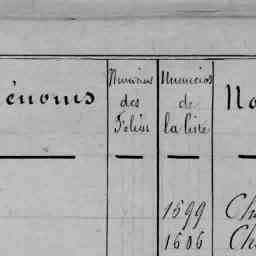 énoms
Numéros
des
Folios
Numéros
de
la liste
No
1599 Ch
1606 Ch